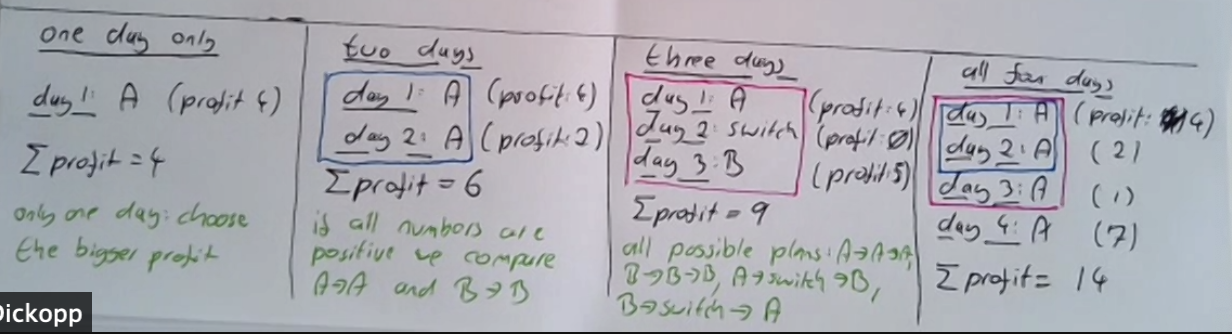 one day only
day 1: A (profit 4)
Σ profit = 4
only one day: choose
the bigger profit
two days
day 1: A (profit: 4)
day 2: A (profit: 2)
Σ profit = 6
if all numbers are
positive we compare
A→A and B→B
three days
day 1: A (profit: 4)
day 2: switch (profit: 0)
day 3: B (profit: 5)
Σ profit = 9
all possible plans: A→A→A,
B→B→B, A→switch→B,
B→switch→A
all four days
day 1: A (profit: 4)
day 2: A (2)
day 3: A (1)
day 4: A (7)
Σ profit = 14
Dickopp